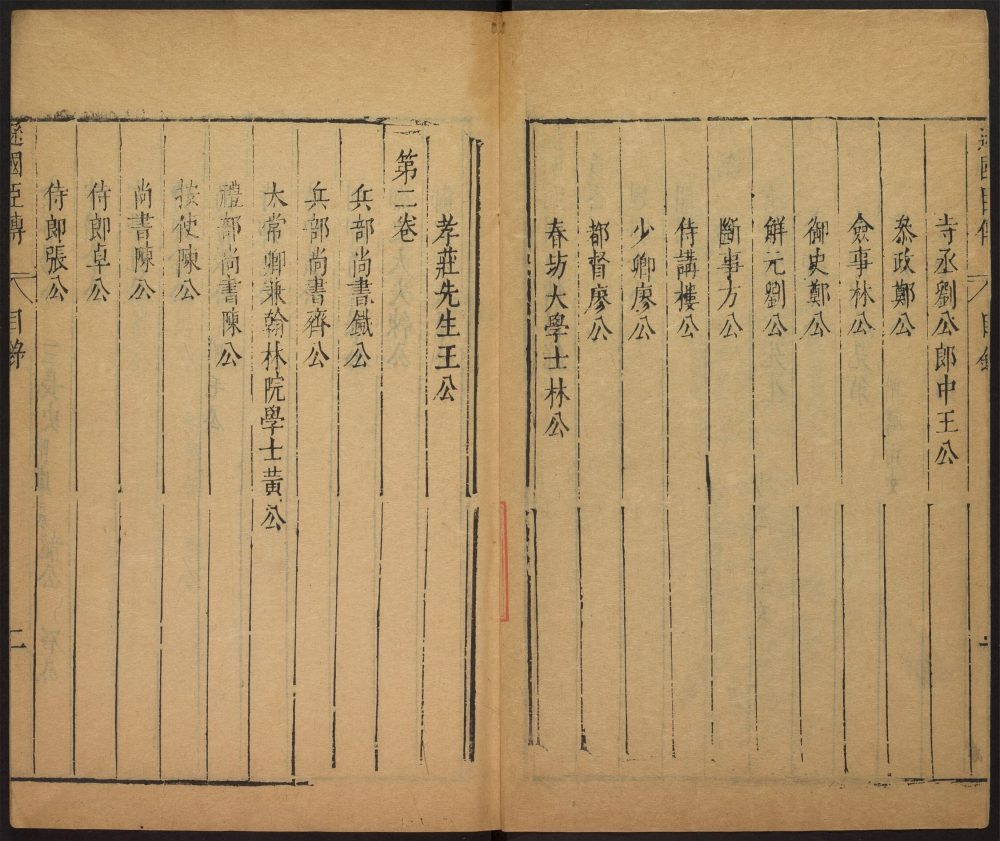 遜國臣傳 目錄 一
寺丞劉公郎中王公
叅政鄭公
僉事林公
御史鄭公
解元劉公
斷事方公
侍講樓公
少卿廖公
都督廖公
春坊大學士林公
孝莊先生王公
第二卷
兵部尚書鐵公
兵部尚書齊公
太常卿兼翰林院學士黃公
禮部尚書陳公
按使陳公
尚書陳公
侍郎卓公
侍郎張公
遜國臣傳 目錄 二